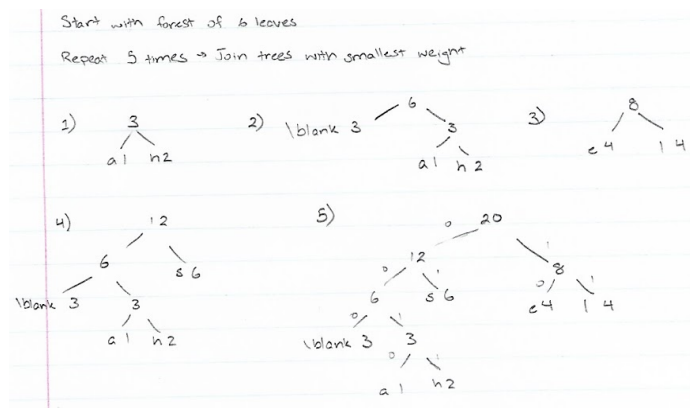 Start with forest of 6 leaves
Repeat 5 times → Join trees with smallest weight
1) 3
a 1 h 2
2) 6
\blank 3 3
a 1 h 2
3) 8
e 4 l 4
4) 12
6 s 6
\blank 3 3
a 1 h 2
5) 20
0 1
12 8
0 1 0 1
6 s 6 e 4 l 4
0 1
\blank 3 3
0 1
a 1 h 2